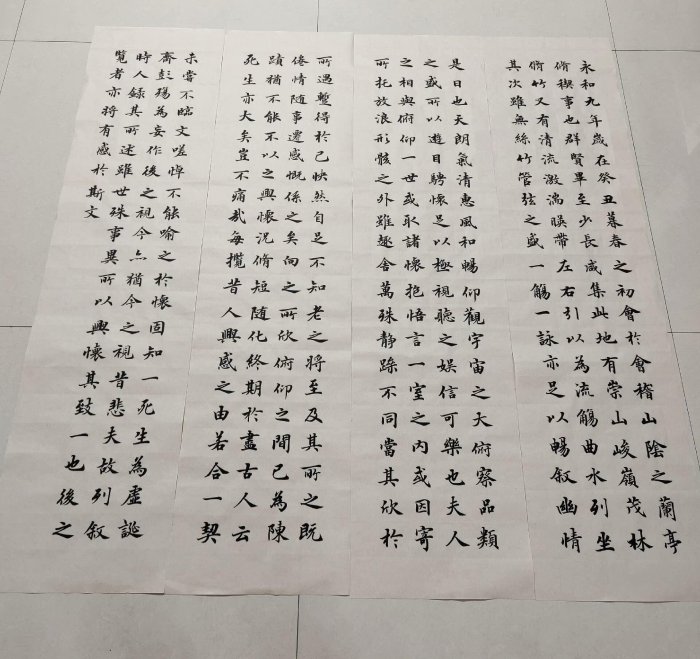 永和九年歲在癸丑暮春之初會於會稽山陰之蘭亭
脩禊事也群賢畢至少長咸集此地有崇山峻嶺茂林
脩竹又有清流激湍暎帶左右引以為流觴曲水列坐
其次雖無絲竹管弦之盛一觴一詠亦足以暢叙幽情
是日也天朗氣清惠風和暢仰觀宇宙之大俯察品類
之盛所以遊目騁懷足以極視聽之娛信可樂也夫人
之相與俯仰一世或取諸懷抱悟言一室之內或因寄
所托放浪形骸之外雖趣舍萬殊静躁不同當其欣於
所遇蹔得於己快然自足不知老之將至及其所之既
倦情隨事遷感慨係之矣向之所欣俯仰之間已為陳
蹟猶不能不以之興懷況脩短随化終期於盡古人云
死生亦大矣豈不痛哉每攬昔人興感之由若合一契
未嘗不臨文嗟悼不能喻之於懷固知一死生為虛誕
齊彭殤為妄作後之視今亦猶今之視昔悲夫故列叙
時人録其所述雖世殊事異所以興懷其致一也後之
覽者亦將有感於斯文